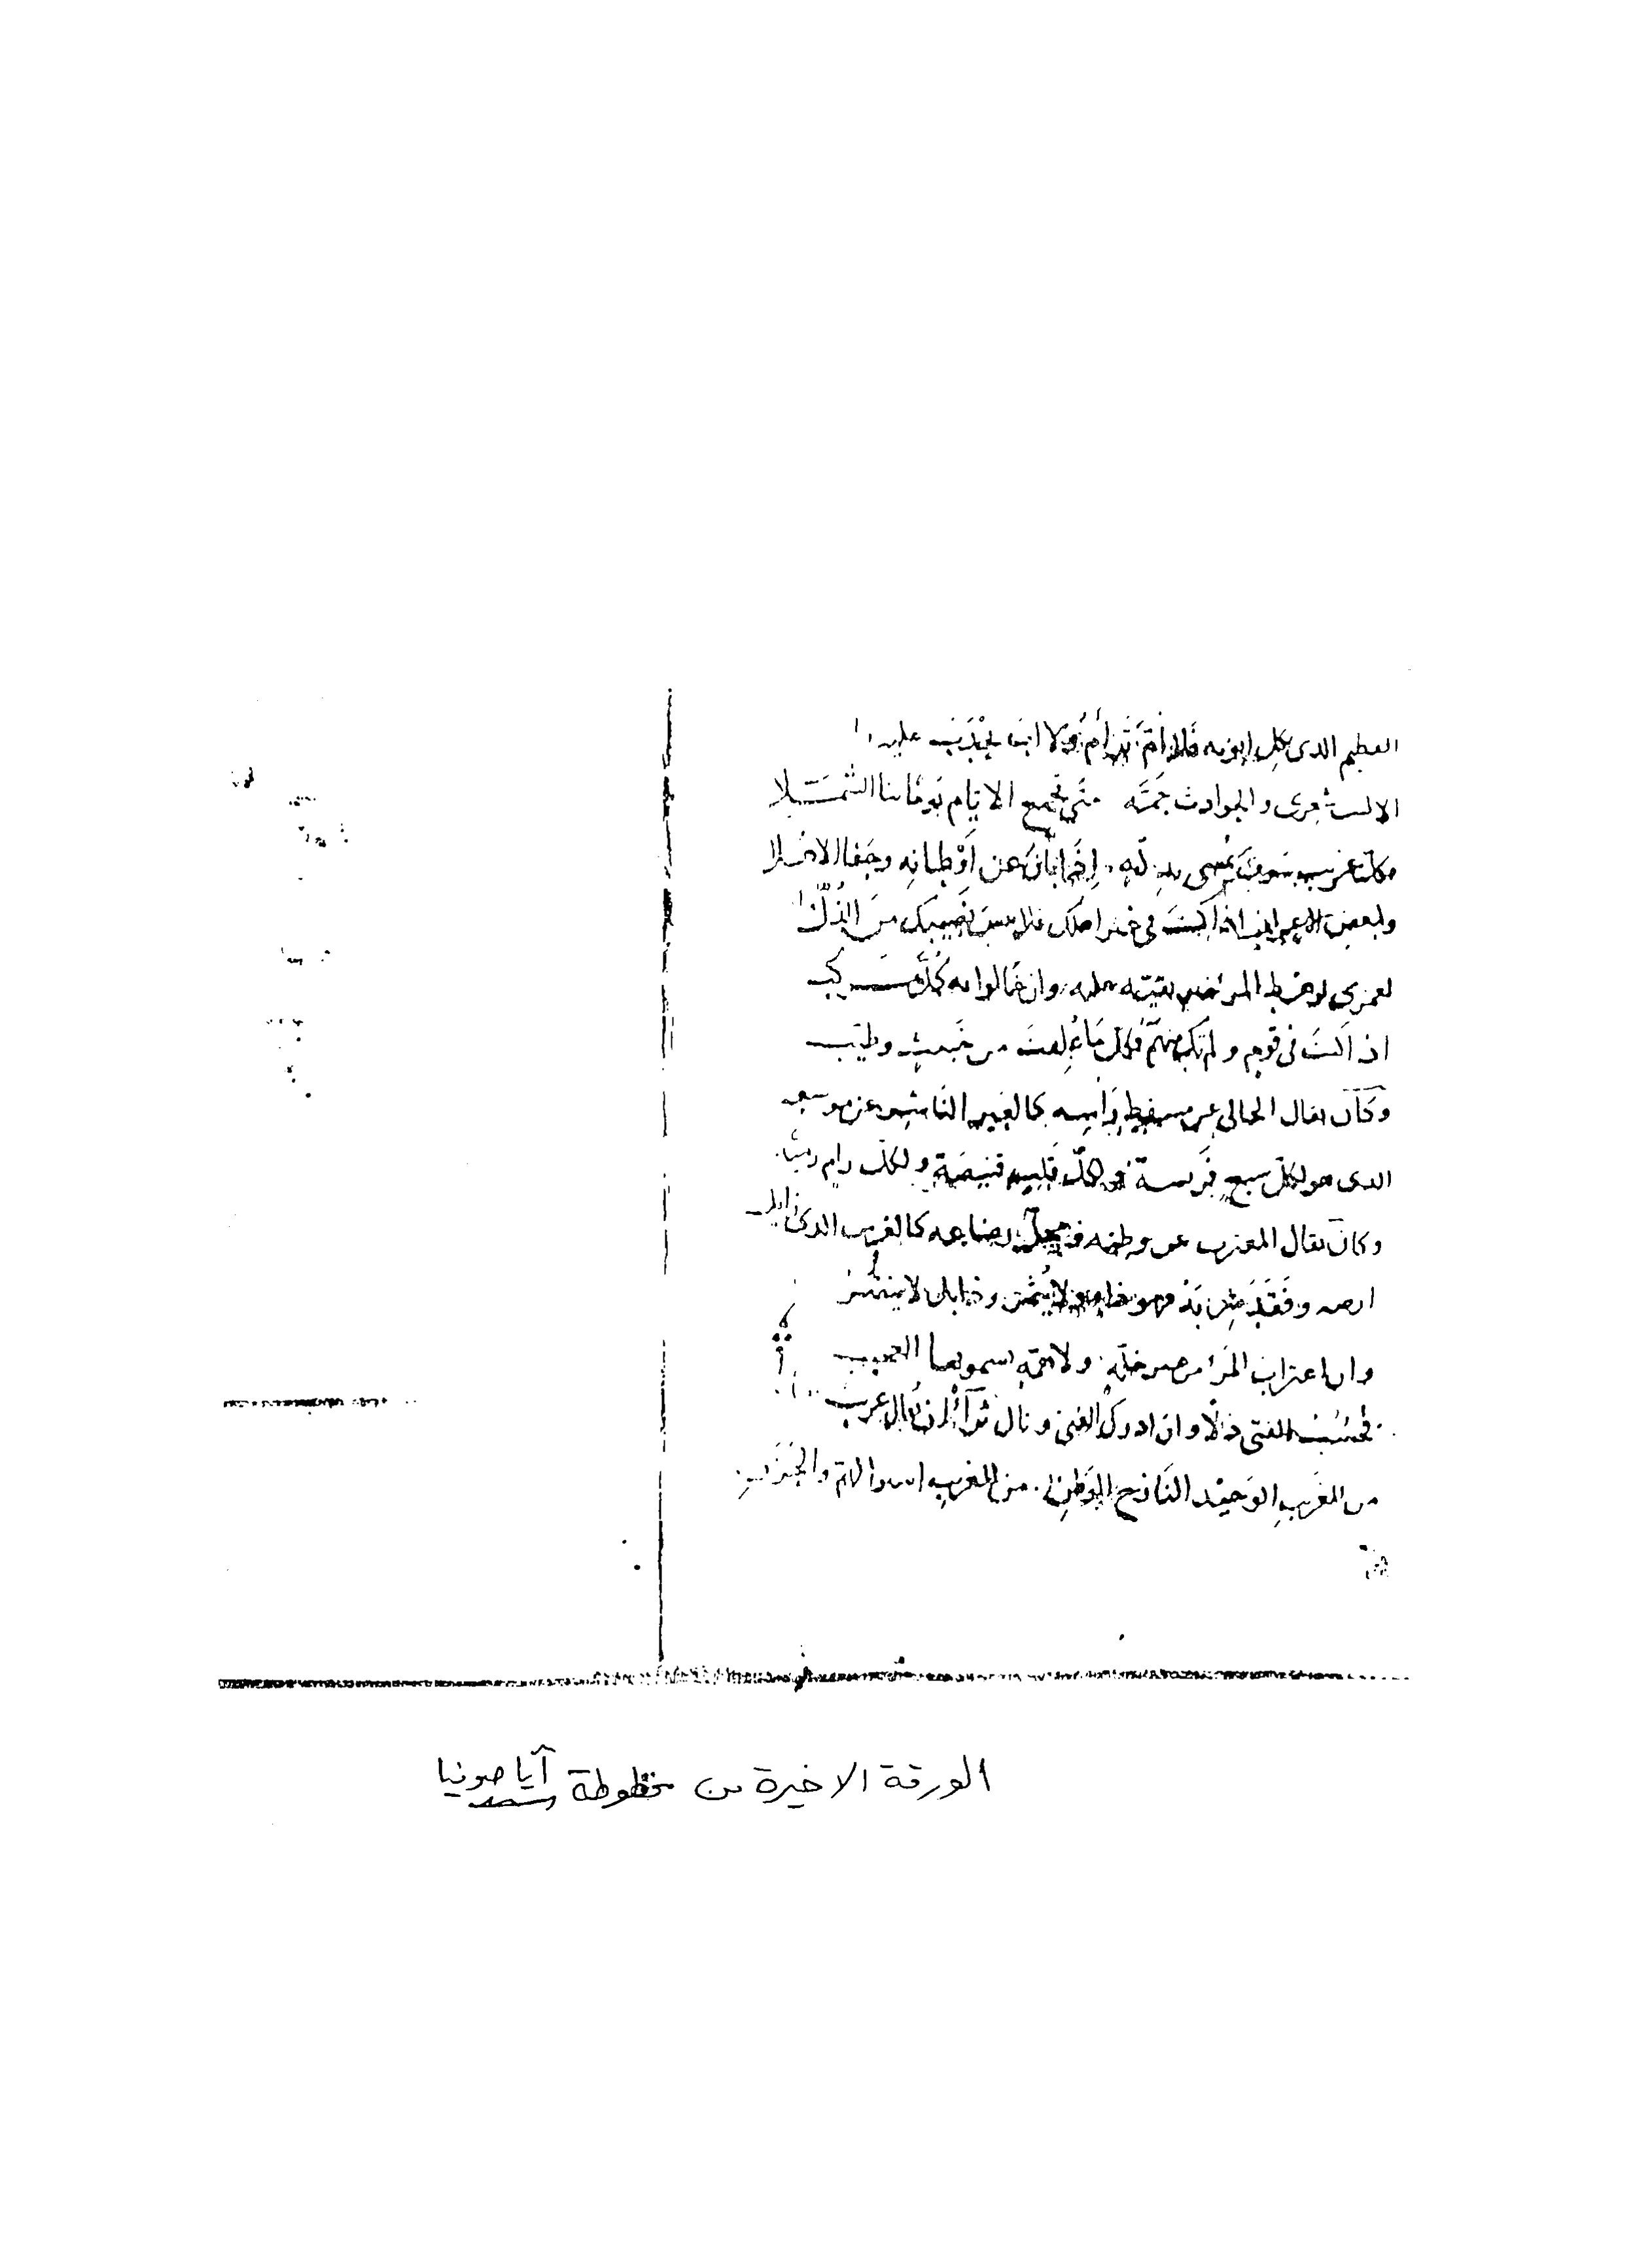 العظيم الذى ثكل ابويه فلا ام ترامه ولا اب يحدب عليه
الا ليت شعرى والحوادث جمة متى تجمع الايام يوما لنا الشملا
وكل غريب سوف يمسى بذلة اذا بان عن اوطانه وجفا الاهلا
ولبعض الاعراب اذا كنت فى غير اهلك فلا تنس نصيبك من الذل
لعمرى لرهط المرء خير بقية عليه وان عالوا به كل مركب
اذا كنت فى قوم ولم تك منهم فكل ما علفت من خبيث وطيب
وكان يقال الجالى عن مسقط راسه كالعير الناشز عن موضعه
الذى هو لكل سبع فريسة ولكل كلب قنيصة ولكل رام رمية
وكان يقال المغترب عن وطنه ومحل رضاعه كالفرس الذى زايل
ارضه وفقد شربه فهو ذاو لا يثمر وذابل لا ينضر
وان اغتراب المرء من غير خلة ولا همة يسمو بها لعجيب
فحسب الفتى ذلا وان ادرك الغنى ونال ثراء ان يقال غريب
من الغريب الوحيد النازح الوطن من الغريب الهم والحزن
الورقة الاخيرة من مخطوطة آيا صوفيا